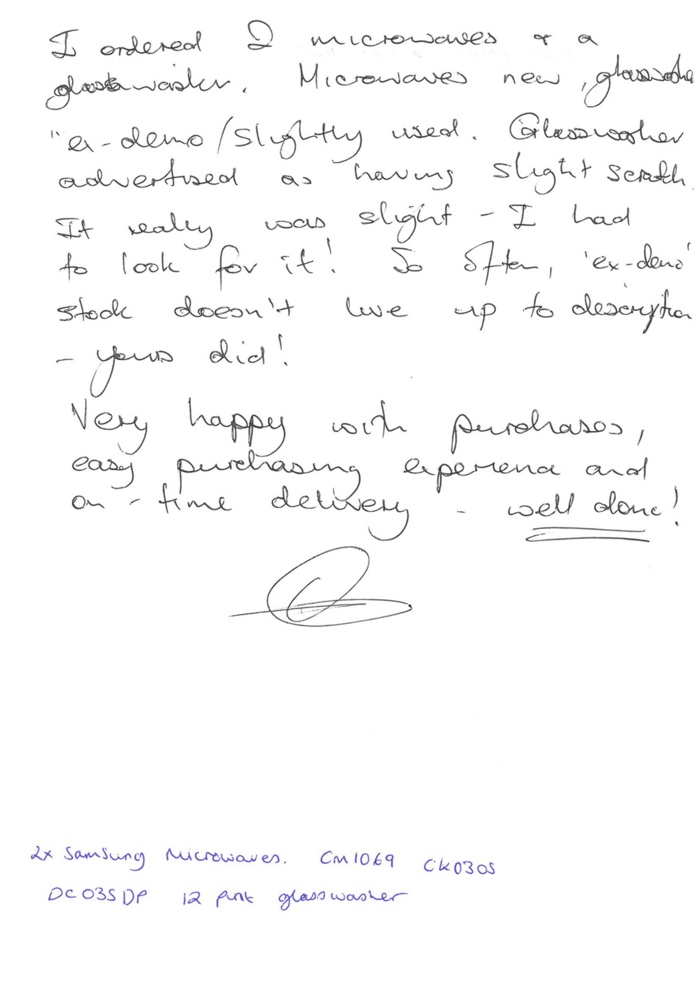 I ordered 2 microwaves & a
glasswasher. Microwaves new, glasswasher
"ex-demo/slightly used. Glasswasher
advertised as having slight scratch.
It really was slight - I had
to look for it! So often, 'ex-demo'
stock doesn't live up to description
- yours did!
Very happy with purchases,
easy purchasing experience and
on-time delivery - well done!
2x Samsung Microwaves. CM1069 CK0305
DC03SDP 12 pint glasswasher